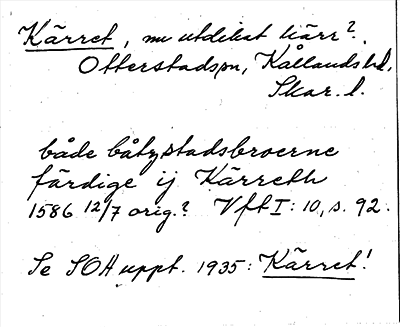 Kärret, nu utdikat kärr?.
Otterstads sn, Kållands hd,
Skar. l.
både båtzstadsbroerne
färdige ij Kärreth
1586 12/7 orig.? VftI: 10, s. 92.
Se SOH uppt. 1935: Kärret!